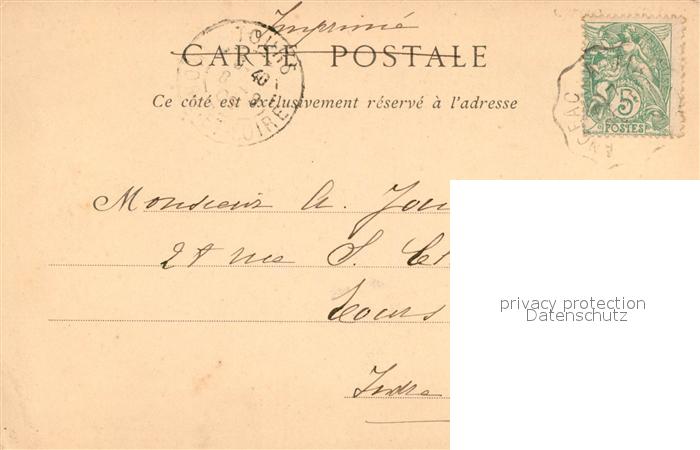 Imprimé
CARTE POSTALE
Ce côté est exclusivement réservé à l'adresse
TOURS
LOIRE
5c
POSTES
Monsieur A. Jou
rue S.
Tours
Indre
privacy protection
Datenschutz